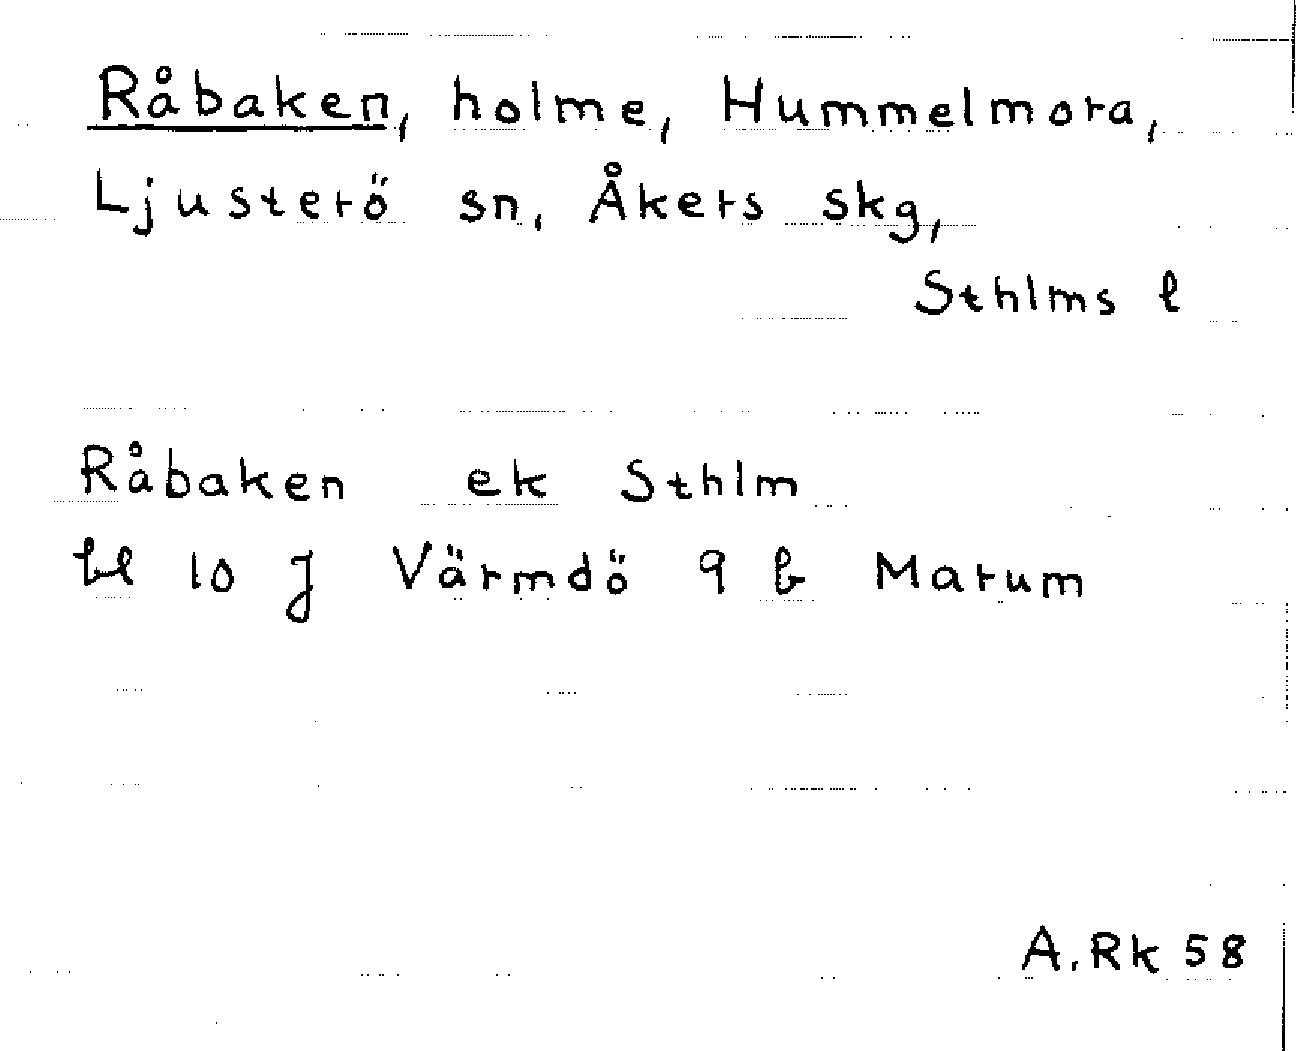 Råbaken, holme, Hummelmora,
Ljusterö sn, Åkers skg,
Sthlms l
Råbaken ek Sthlm
bl 10 J Värmdö 9 b Marum
A. Rk 58